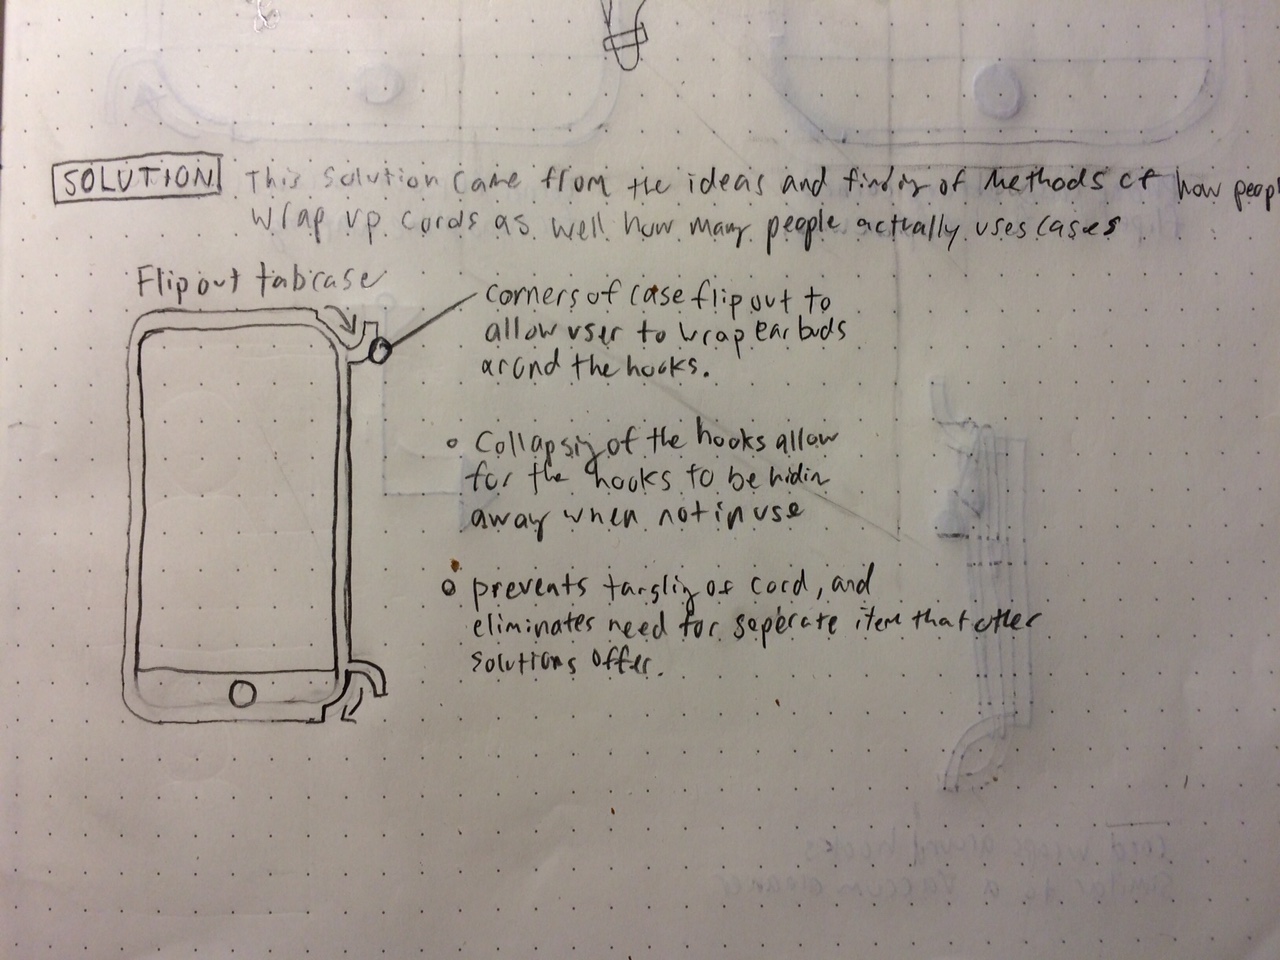 SOLUTION This solution came from the ideas and finding of Methods of how peopl
wrap up cords as well how many people actually uses cases
Flip out tab case
corners of case flip out to
allow user to wrap ear buds
around the hooks.
Collapsig of the hooks allow
for the hooks to be hidin
away when not in use
prevents tanglig of cord, and
eliminates need for seperate item that other
solutions offer.